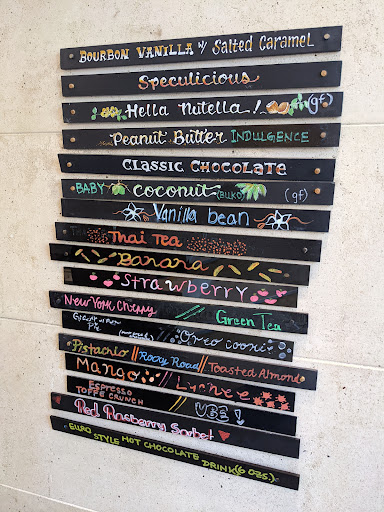 BOURBON VANILLA w/ Salted Caramel
Speculicious
Hella Nutella! (gf)
Peanut Butter INDULGENCE
CLASSIC CHOCOLATE
BABY coconut (BUKO) (gf)
Vanilla bean
Thai Tea
BANANA
Strawberry
New York Cherry // Green Tea
// Oreo cookie
Pistachio // Rocky Road // Toasted Almond
Mango // Lychee
ESPRESSO TOFFE CRUNCH // UBE!
Red Raspberry Sorbet
EURO STYLE HOT CHOCOLATE DRINK (6 OZS.)